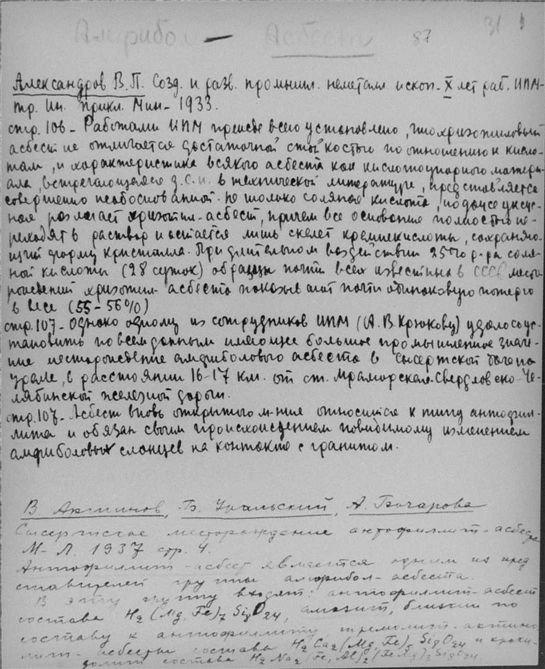 Амфибол — Асбест 87 31
Александров В.П. Созд. и разв. промышл. неметалл ископ. X лет раб. ИПМ-
тр. Ин. Прикл. Мин. - 1933.
стр. 106 - Работами ИПМ прежде всего установлено, что хризотиловый
асбест не отличается достаточной стойкостью по отношению к кисло-
там, и характеристика всякого асбеста как кислотоупорного матери-
ала, встречающаяся д.с.п. в технической литературе, представляется
совершенно необоснованной. Не только соляная кислота, но даже уксус-
ная разлагает хризотил-асбест, причем все основания полностью пе-
реходят в раствор и остается лишь скелет кремнекислоты, сохраняю-
щий форму кристалла. При длительном воздействии 25%го р-ра соля-
ной кислоты (28 суток) образцы почти всех известных в СССР место-
рождений хризотил-асбеста показывают почти одинаковую потерю
в весе (55-56%)
стр. 107 - Однако одному из сотрудников ИПМ (А.В. Крюкову) удалось ус-
тановить по всем данным имеющее большое промышленное значе-
ние месторождение амфиболового асбеста в Сысертской даче на
Урале, в расстоянии 16-17 км. от ст. Мраморская Свердловско-Че-
лябинской железной дороги.
стр. 107 - Асбест вновь открытого м-ния относится к типу антофил-
лита и обязан своим происхождением повидимому изменением
амфиболовых сланцев на контакте с гранитом.
В Актинов, Б. Уральский, А. Бочарова
Сысертское месторождение антофиллит-асбеста
М-Л. 1937 стр. 4.
Антофиллит-асбест является одним из пред
ставителей группы амфибол-асбеста.
В эту группу входят: антофиллит-асбест
состава H₂(Mg,Fe)₇Si₈O₂₄, амозит, близкий по
составу к антофиллиту тремолит-актино
лит-асбесты состава H₂Ca₂(Mg,Fe)₅Si₈O₂₄ и кроки-
долит состава H₂Na₂